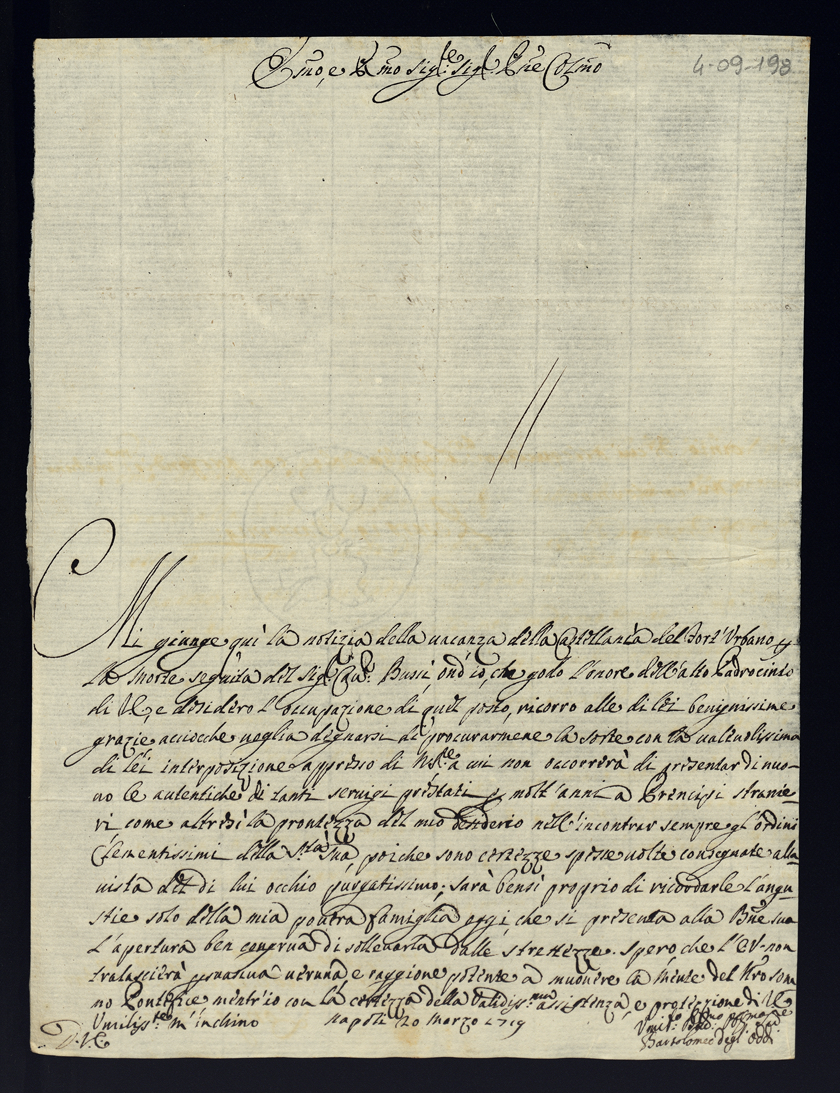 Emo, e Rmo Sig.re Sig.r Pne Colmo
4-09-193
Mi giunge qui la notizia della vacanza della Castellania del Fort'Urbano p
la morte seguita del Sig.r Cav.r Bussi, ond'io, che godo l'onore dell'alto Padrocinio
di VE, e desidero l'occupazione di quel posto, ricorro alle di lei benignissime
grazie acciocche voglia degnarsi di procurarmene la sorte con la valevolissima
di lei interposizione appresso di N.Sre a cui non occorrerà di presentar di nuo-
vo le autentiche di tanti servigi préstati p molt'anni a Prencipi stranie-
ri come altresi la prontezza del mio desiderio nell'incontrar sempre gl'ordini
Clementissimi della S.tà Sua, poiche sono certezze spesse volte consegnate alla
vista del di lui occhio purgatissimo; sarà bensi proprio di ricordarle l'angu-
stie solo della mia povera famiglia oggi, che si presenta alla Bne sua
l'apertura ben congrua di sollevarla dalle strettezze. Spero, che l'EV non
tralascierà persuasiva veruna, e raggione potente à muovere la mente del Nro Som-
mo Pontefice mentr'io con la certezza della validiss.ma assistenza, e protezzione di VE
Umiliss.te m'inchino Napoli 20 Marzo 1719
D.V.E.
Bartolomeo degl'Oddi